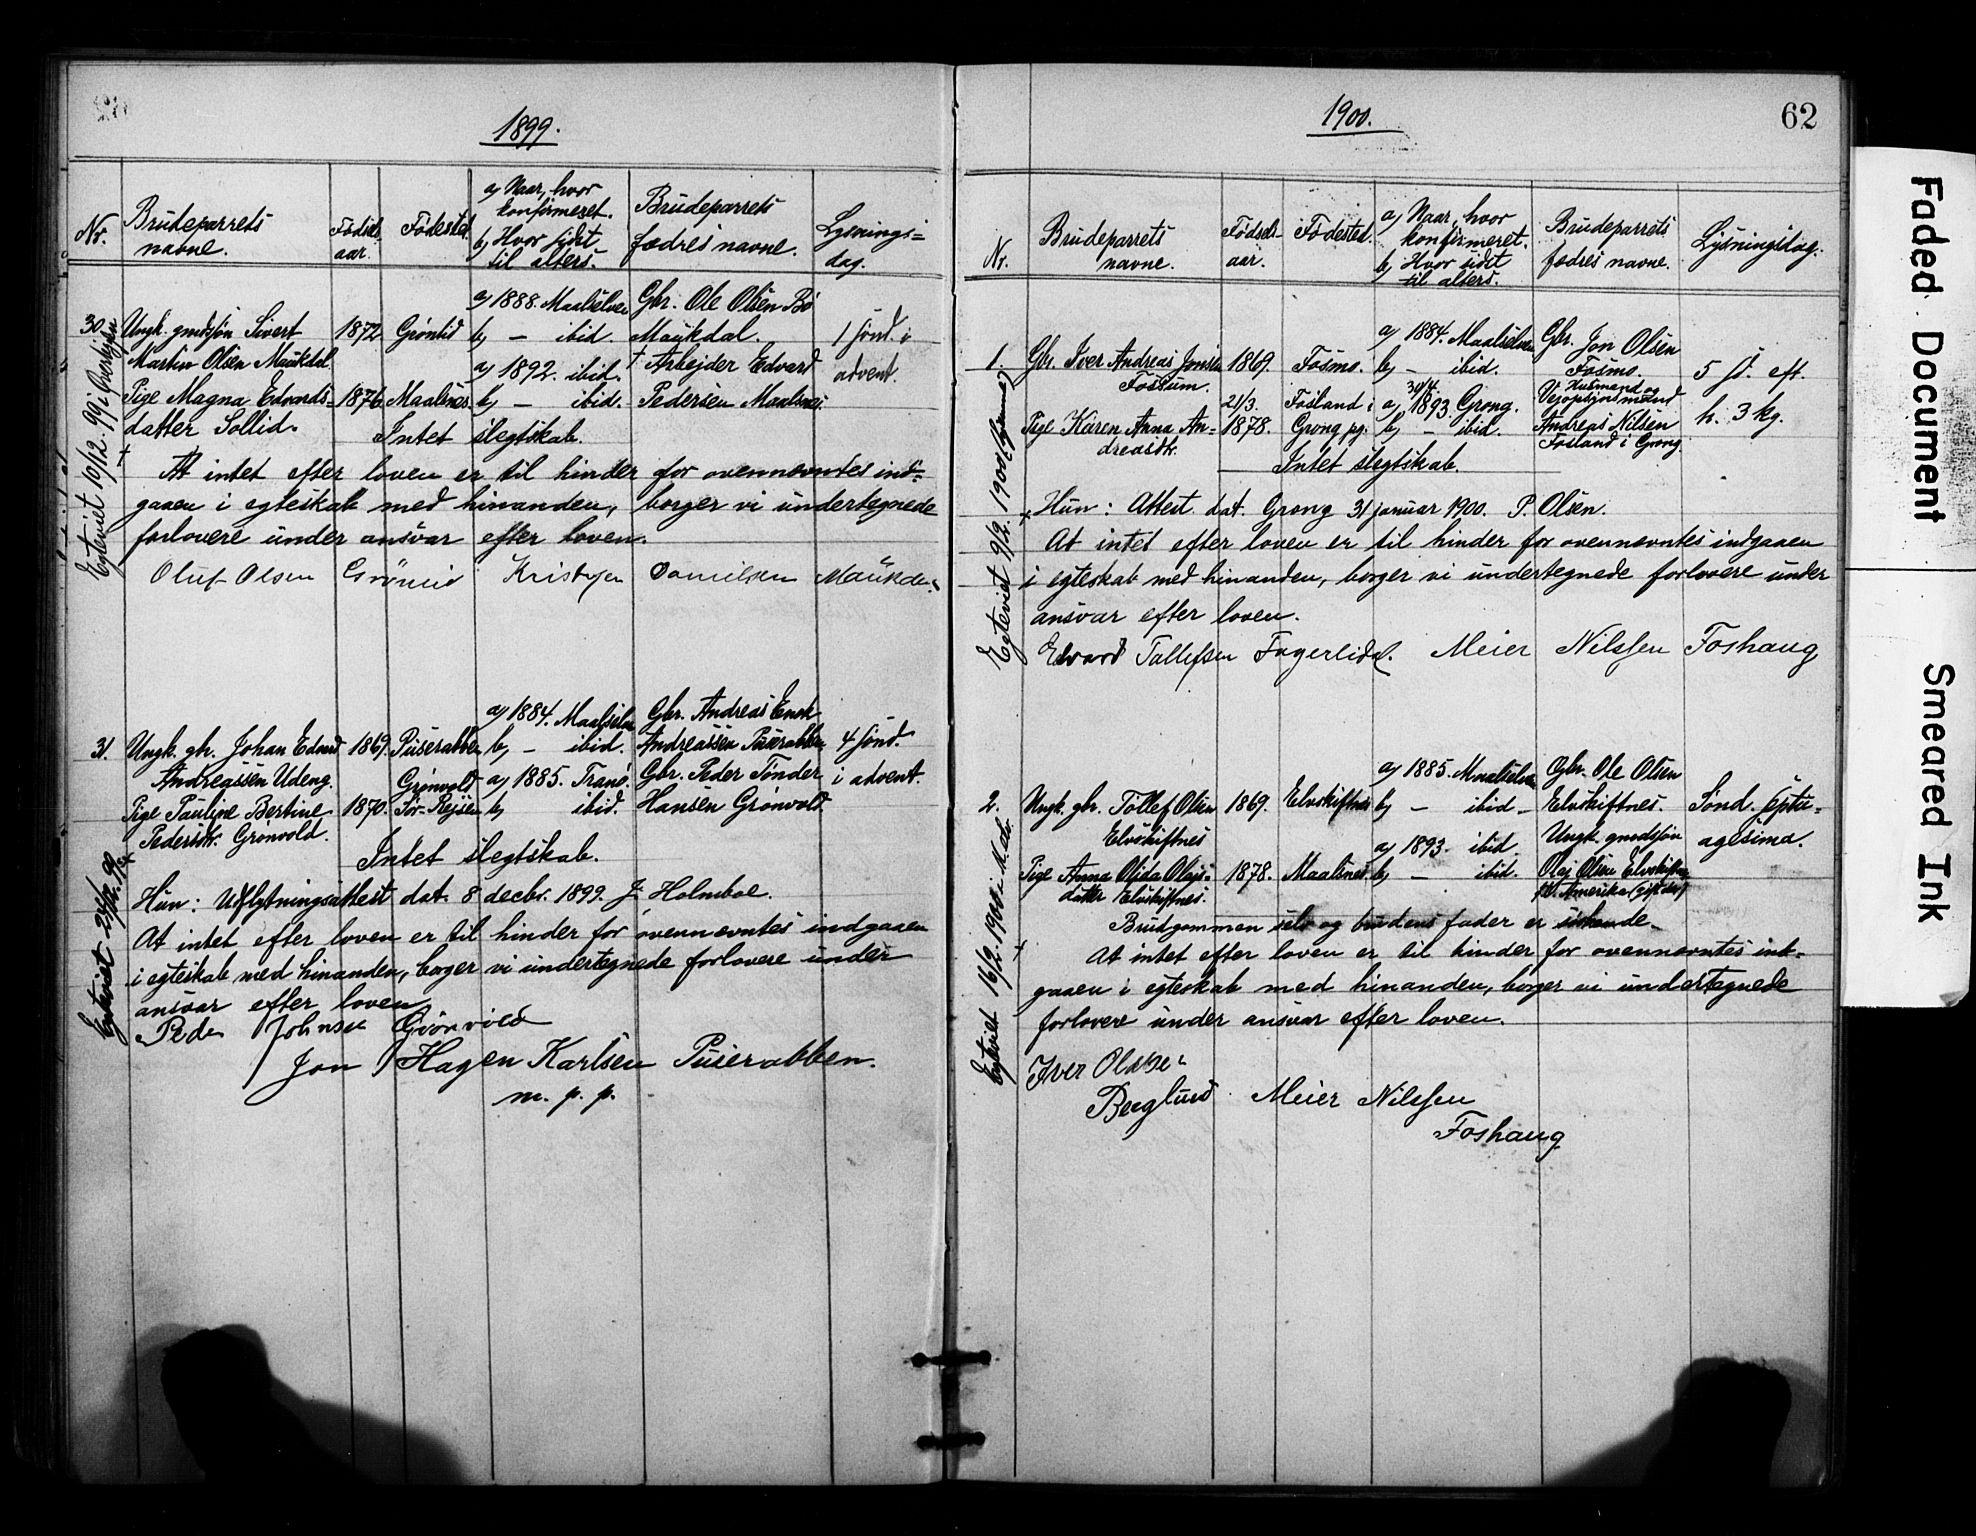 1899.
Nr. Brudeparrets navne. Fødsels-aar. Fødested. a) Naar, hvor konfirmeret. b) Hvor sidst til alters. Brudeparrets fædres navne. Lysnings-dag.
30. Ungk. gmdsøn Sivert 1872 Grøntid a) 1888. Maalselven Gbr. Ole Olsen Bø
Martin Olsen Maukdal b) — ibid. Maukdal. 1 sønd. i
Pige Magna Edvards- 1876. Maalsnes. a) 1892. ibid. † Arbejder Edvard advent.
datter Sollid. b) — ibid. Pedersen Maalsnes.
Intet slegtskab.
At intet efter loven er til hinder for ovennævntes ind-
gaaen i egteskab med hinanden, borger vi undertegnede
forlovere under ansvar efter loven.
Oluf Olsen Grönlid Kristofer Danielsen Maukdal
Egteviet 16/12. 99 i
31. Ungk. gbr. Johan Edvard 1869. Puserabben a) 1884. Maalselven Gbr. Andreas Enok
Andreassen Udeng. b) — ibid. Andreassen Puserabben 4 sønd.
Pige Pauline Bertine 1870. Grønvold Sør-Rejsen a) 1885. Tranø. Gbr. Peder Tønder i advent.
Pedersdtr. Grønvold. b) ibid. Hansen Grønvold.
Intet slegtskab.
Hun: Udflytningsattest dat. 8 decbr. 1899. J. Holmboe.
At intet efter loven er til hinder for ovennævntes indgaaen
i egteskab med hinanden, borger vi undertegnede forlovere under
ansvar efter loven.
Peder Johnsen Grönvold
Jon Hagen Karlsen Puserabben.
m. p. p.
Egteviet 99
1900.
62
Nr. Brudeparrets navne. Fødsels-aar. Fødested. a) Naar, hvor konfirmeret. b) Hvor sidst til alters. Brudeparrets fædres navne. Lysningsdag.
1. Gbr. Iver Andreas Jonsen 1869. Fosmo. a) 1884. Maalselven Gbr. Jon Olsen
Fossum. b) — ibid. Fosmo. 5 s. eft.
Pige Karen Anna An- 21/3. 1878. Fosland i Grong pg. a) 30/4 1893. Grong. Husmand og Vejopsynsmand h. 3 kg.
dreasdtr. b) — ibid. Andreas Nilsen
Fosland i Grong
Intet slegtskab.
Hun: Attest dat. Grong 31 januar 1900. P. Olsen.
At intet efter loven er til hinder for ovennævntes indgaaen
i egteskab med hinanden, borger vi undertegnede forlovere under
ansvar efter loven.
Edvard Tollefsen Fagerlidal. Meier Nilssen Foshaug
Egteviet 9/2. 1900
2. Ungk. gbr. Tollef Olsen 1869. Elvskiftnes a) 1885. Maalselven Gbr. Ole Olsen
Elvskiftnes b) — ibid — Elvskiftnes. Sønd. septu-
Pige Anna Olida Olajs- 1878. Maalsnes a) 1893. ibid Ungk. gmdsøn agesima.
datter Elvskiftnes. b) — ibid. Olaj Olsen Elvskiftnes
Amerika
Brudgommen selv og brudens fader er
At intet efter loven er til hinder for ovennævntes ind-
gaaen i egteskab med hinanden, borger vi undertegnede
forlovere under ansvar efter loven.
Iver Olsen
Berglund Meier Nilssen
Foshaug
Egteviet 16/2. 1900
Faded Document
Smeared Ink